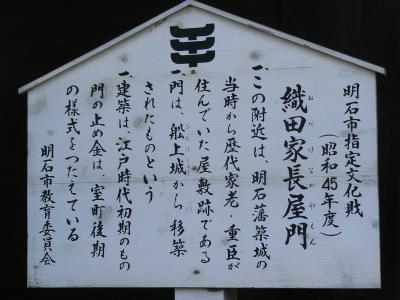 明石市指定文化財
（昭和45年度）
織田家長屋門
おだけながやもん
一、この附近は、明石藩築城の
当時から歴代家老・重臣が
住んでいた屋敷跡である
一、門は、船上城から移築
されたものという
一、建築は、江戸時代初期のもの
門の止め金は、室町後期
の様式をつたえている
明石市教育委員会